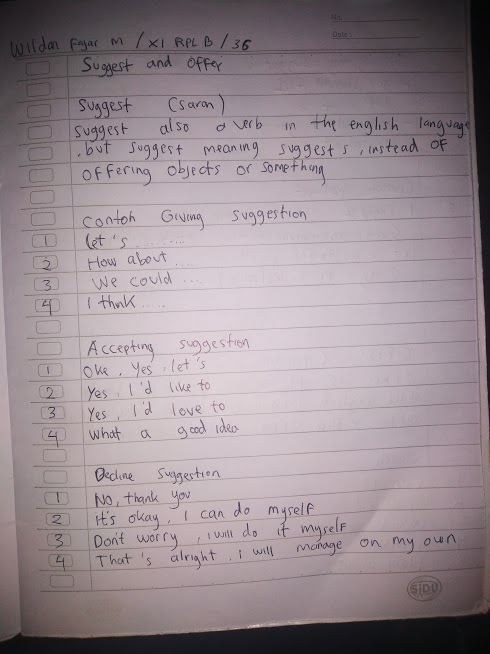 No.
Date :
Wildan Fajar M / XI RPL B / 36
Suggest and Offer
Suggest (saran)
Suggest also a verb in the english language
, but suggest meaning suggests, instead of
offering objects or something
Contoh Giving suggestion
1 let's ........
2 How about ...
3 We could ...
4 I think ....
Accepting suggestion
1 Oke, Yes, let's
2 Yes, I'd like to
3 Yes, I'd love to
4 What a good idea
Decline Suggestion
1 No, thank you
2 It's okay, I can do myself
3 Don't worry, I will do it myself
4 That's alright, i will manage on my own
SIDU